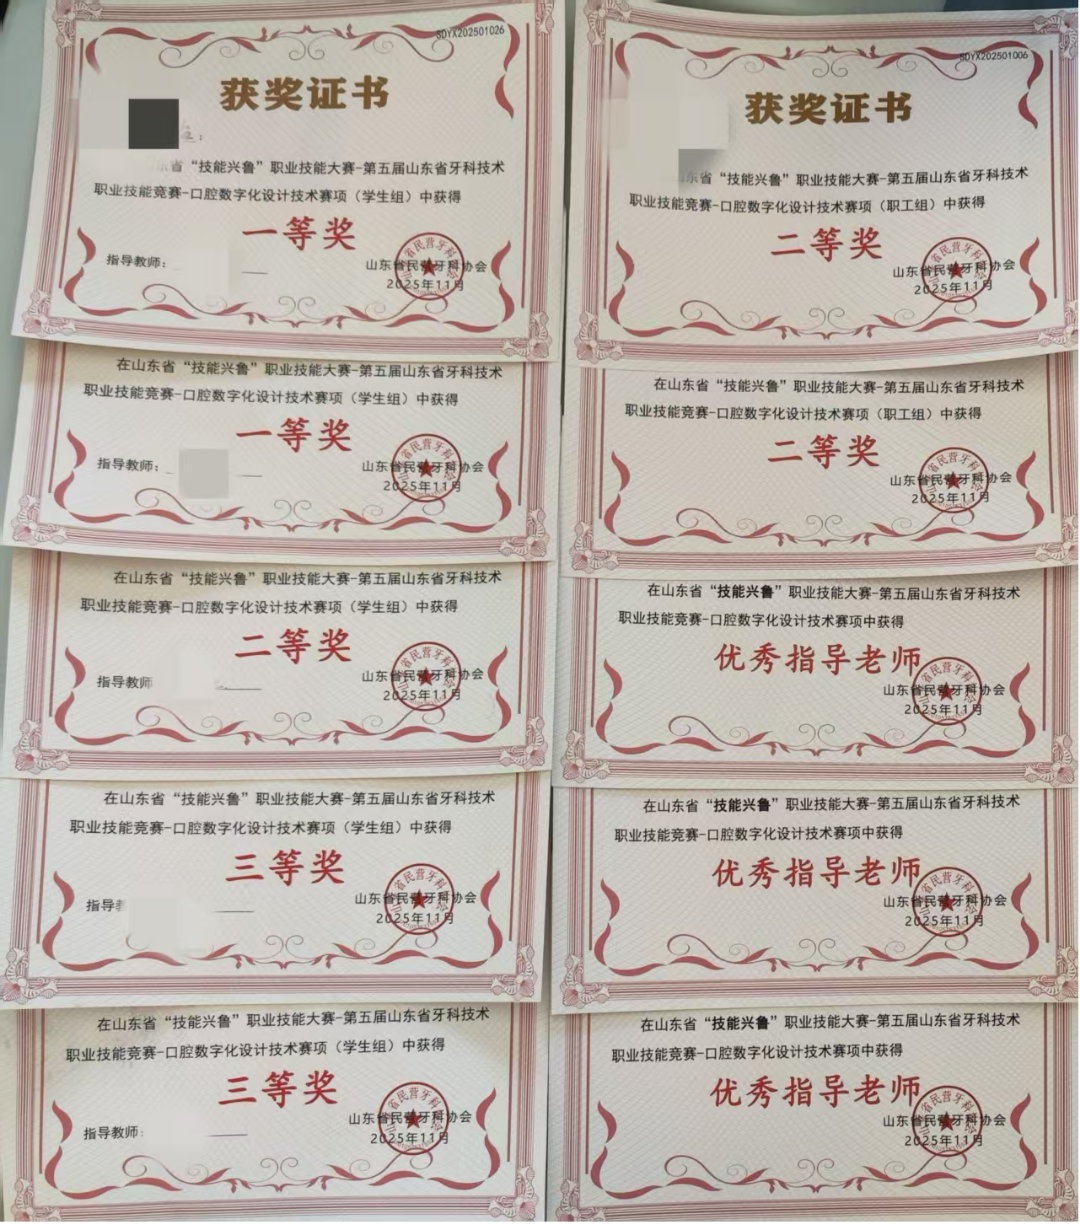 SDYX202501026
获奖证书
东省“技能兴鲁”职业技能大赛-第五届山东省牙科技术
职业技能竞赛-口腔数字化设计技术赛项（学生组）中获得
一等奖
指导教师：
山东省民营牙科协会
2025年11月
在山东省“技能兴鲁”职业技能大赛-第五届山东省牙科技术
职业技能竞赛-口腔数字化设计技术赛项（学生组）中获得
一等奖
指导教师：
山东省民营牙科协会
2025年11月
在山东省“技能兴鲁”职业技能大赛-第五届山东省牙科技术
职业技能竞赛-口腔数字化设计技术赛项（学生组）中获得
二等奖
指导教师
山东省民营牙科协会
2025年11月
在山东省“技能兴鲁”职业技能大赛-第五届山东省牙科技术
职业技能竞赛-口腔数字化设计技术赛项（学生组）中获得
三等奖
指导
山东省民营牙科协会
2025年11月
在山东省“技能兴鲁”职业技能大赛-第五届山东省牙科技术
职业技能竞赛-口腔数字化设计技术赛项（学生组）中获得
三等奖
指导教师：
山东省民营牙科协会
2025年11月
SDYX202501006
获奖证书
东省“技能兴鲁”职业技能大赛-第五届山东省牙科技术
职业技能竞赛-口腔数字化设计技术赛项（职工组）中获得
二等奖
山东省民营牙科协会
2025年11月
在山东省“技能兴鲁”职业技能大赛-第五届山东省牙科技术
职业技能竞赛-口腔数字化设计技术赛项（职工组）中获得
二等奖
山东省民营牙科协会
2025年11月
在山东省“技能兴鲁”职业技能大赛-第五届山东省牙科技术
职业技能竞赛-口腔数字化设计技术赛项中获得
优秀指导老师
山东省民营牙科协会
2025年11月
在山东省“技能兴鲁”职业技能大赛-第五届山东省牙科技术
职业技能竞赛-口腔数字化设计技术赛项中获得
优秀指导老师
山东省民营牙科协会
2025年11月
在山东省“技能兴鲁”职业技能大赛-第五届山东省牙科技术
职业技能竞赛-口腔数字化设计技术赛项中获得
优秀指导老师
山东省民营牙科协会
2025年11月